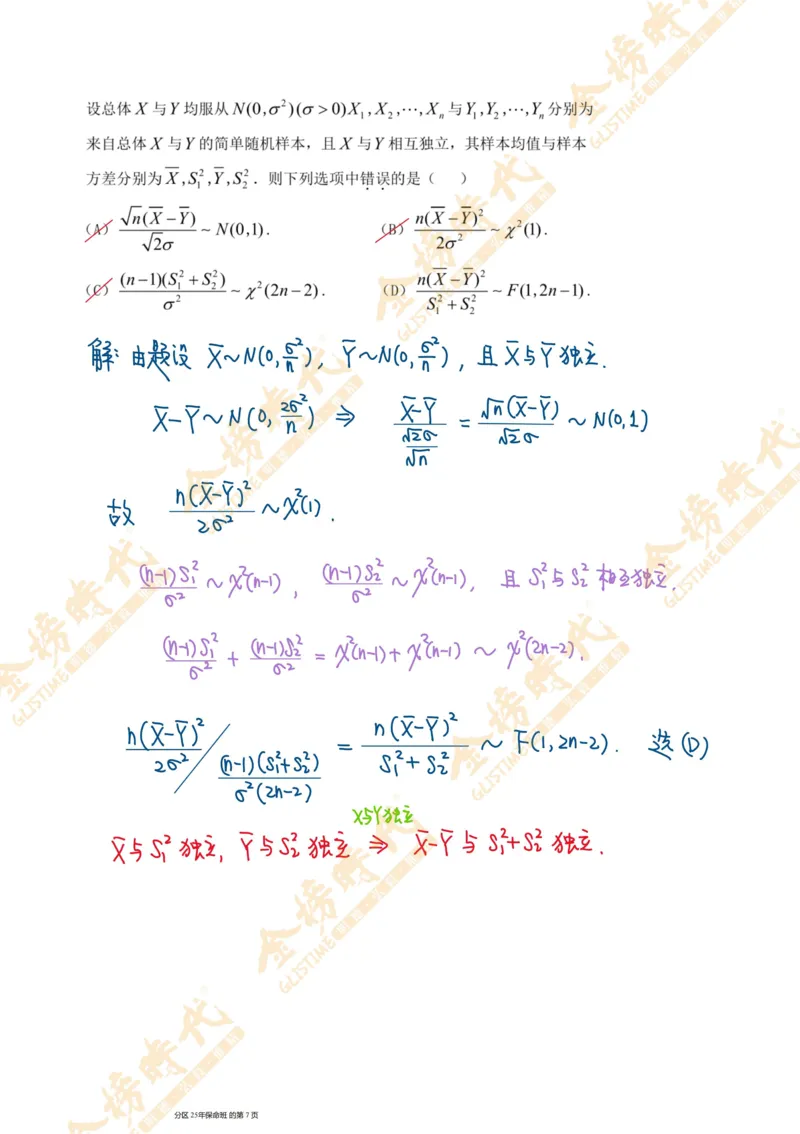 设总体X与Y均服从N(0,σ²)(σ>0)X₁,X₂,⋯,Xₙ与Y₁,Y₂,⋯,Yₙ分别为
来自总体X与Y的简单随机样本，且X与Y相互独立，其样本均值与样本
方差分别为X̄,S₁²,Ȳ,S₂²．则下列选项中错误的是（　）
(A) √n(X̄−Ȳ)/(√2σ) ~ N(0,1). (B) n(X̄−Ȳ)²/(2σ²) ~ χ²(1).
(C) (n−1)(S₁²+S₂²)/σ² ~ χ²(2n−2). (D) n(X̄−Ȳ)²/(S₁²+S₂²) ~ F(1,2n−1).
解: 由题设 X̄~N(0,σ²/n), Ȳ~N(0,σ²/n), 且X̄与Ȳ独立.
X̄−Ȳ~N(0,2σ²/n) ⇒ (X̄−Ȳ)/(√2σ/√n) = √n(X̄−Ȳ)/(√2σ) ~ N(0,1)
故 n(X̄−Ȳ)²/(2σ²) ~ χ²(1).
(n−1)S₁²/σ² ~ χ²(n−1), (n−1)S₂²/σ² ~ χ²(n−1), 且 S₁²与S₂²相互独立.
(n−1)S₁²/σ² + (n−1)S₂²/σ² = χ²(n−1)+χ²(n−1) ~ χ²(2n−2).
n(X̄−Ȳ)²/(2σ²) / (n−1)(S₁²+S₂²)/(σ²(2n−2)) = n(X̄−Ȳ)²/(S₁²+S₂²) ~ F(1,2n−2). 选(D)
X与Y独立
X̄与S₁²独立, Ȳ与S₂²独立 ⇒ X̄−Ȳ与S₁²+S₂²独立.
分区 25年保命班 的第 7 页
金榜時代
GLISTIME